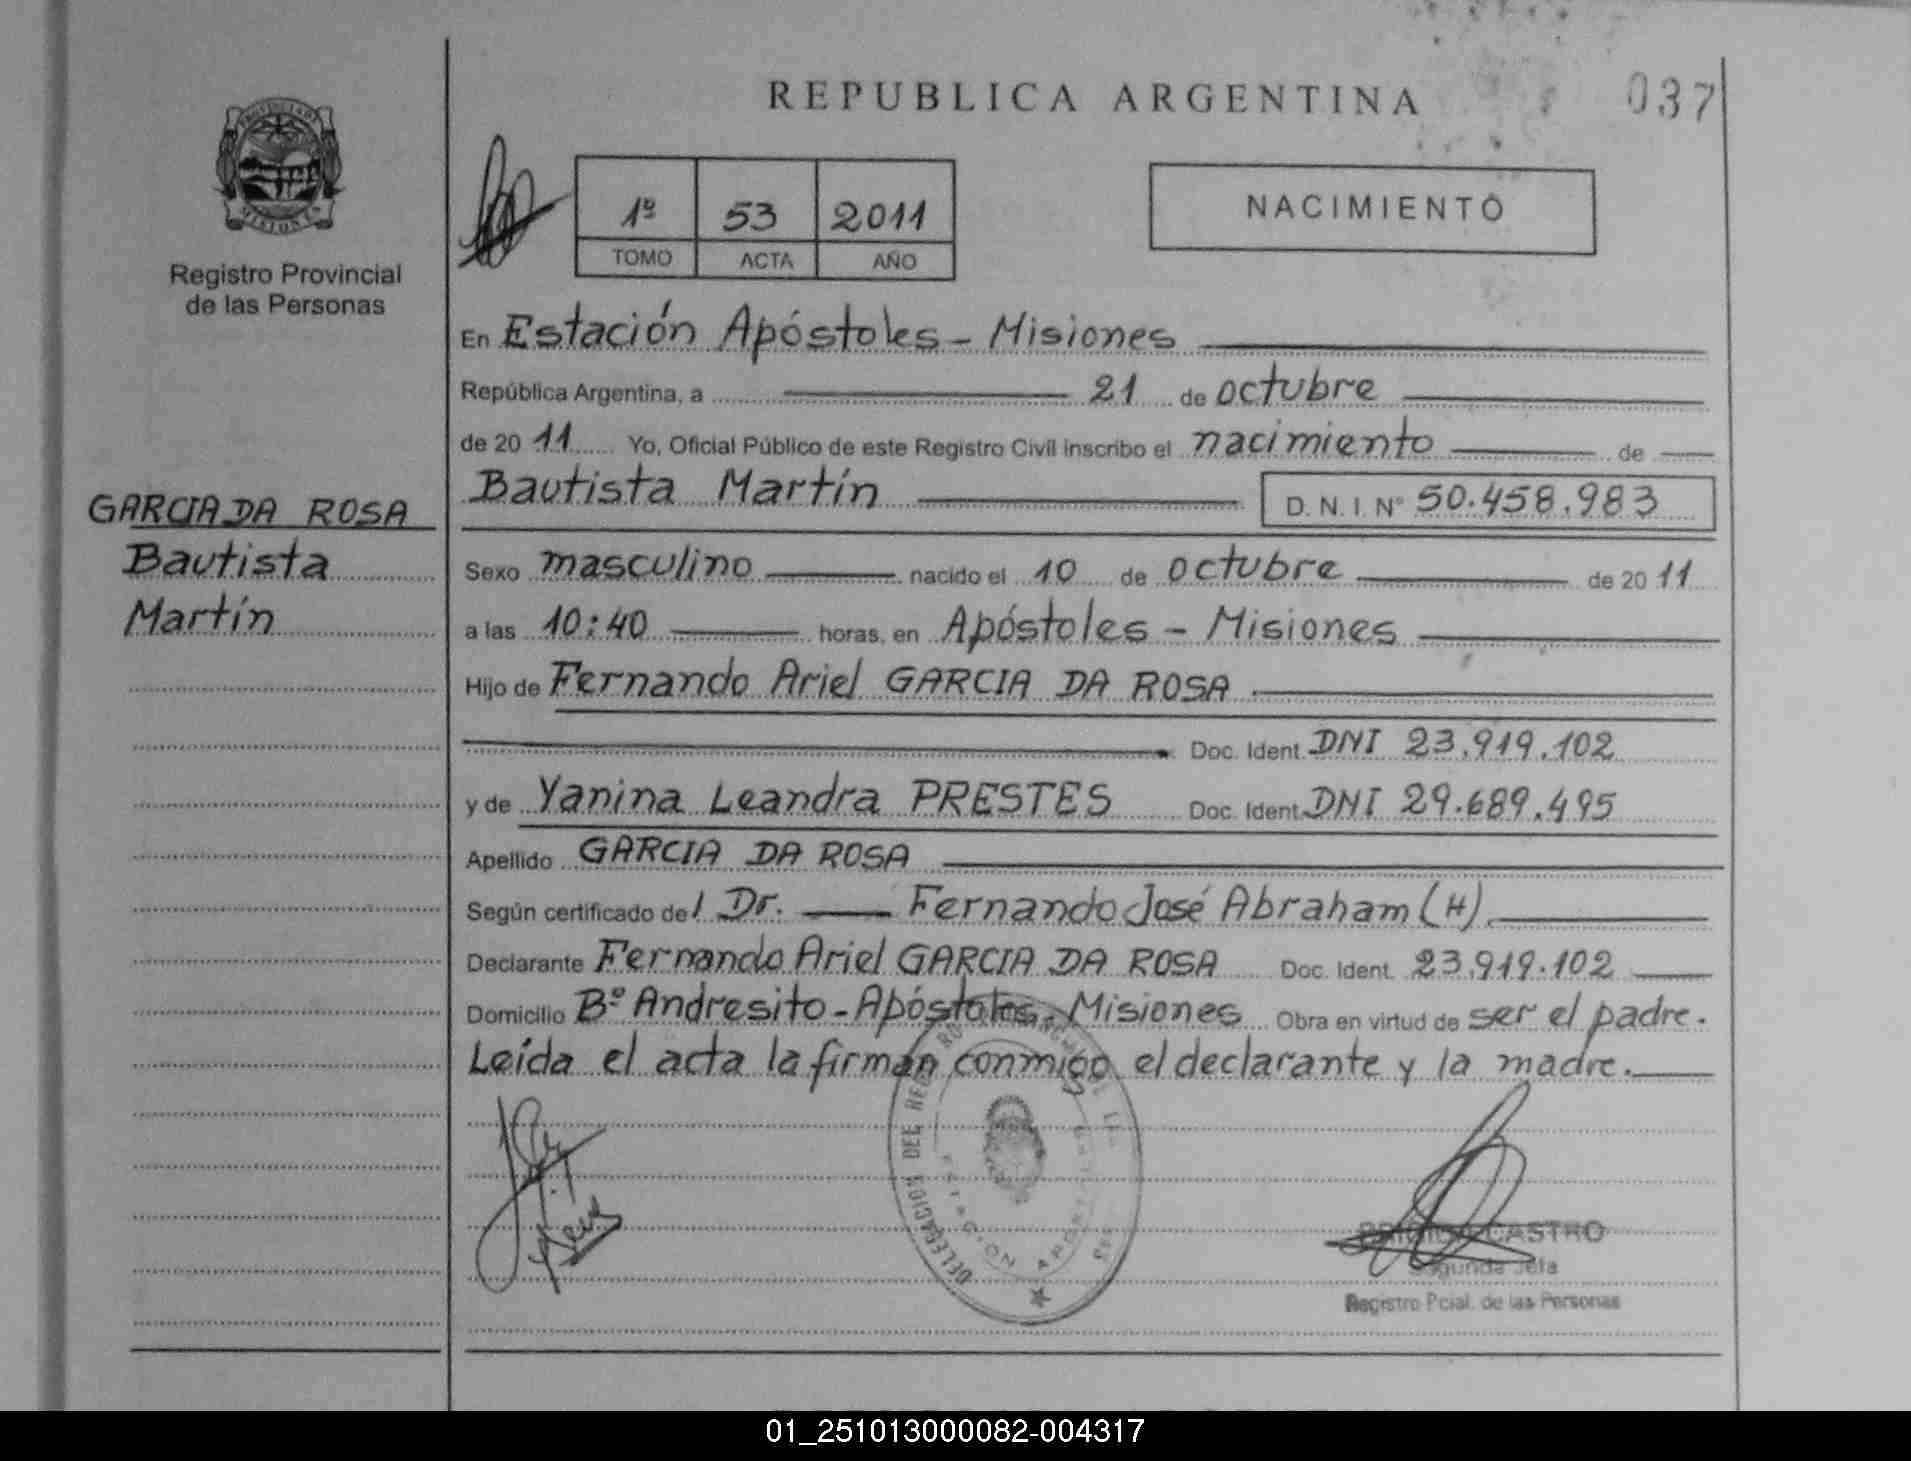 REPUBLICA ARGENTINA
037
PROVINCIA DE
MISIONES
Registro Provincial
de las Personas
1º 53 2011
TOMO ACTA AÑO
NACIMIENTO
En Estación Apóstoles - Misiones
República Argentina, a 21 de octubre
de 20 11 Yo, Oficial Público de este Registro Civil inscribo el nacimiento de
Bautista Martín D.N.I. Nº 50.458.983
GARCIA DA ROSA
Bautista
Martín
Sexo masculino nacido el 10 de octubre de 20 11
a las 10:40 horas, en Apóstoles - Misiones
Hijo de Fernando Ariel GARCIA DA ROSA
Doc. Ident. DNI 23.919.102
y de Yanina Leandra PRESTES Doc. Ident. DNI 29.689.495
Apellido GARCIA DA ROSA
Según certificado del Dr. Fernando José Abraham (H)
Declarante Fernando Ariel GARCIA DA ROSA Doc. Ident. 23.919.102
Domicilio Bº Andresito - Apóstoles. Misiones Obra en virtud de ser el padre.
Leída el acta la firman conmigo el declarante y la madre.
DELEGACION DEL
ESTACION
CASTRO
Segunda Jefa
Registro Pcial. de las Personas
01_251013000082-004317